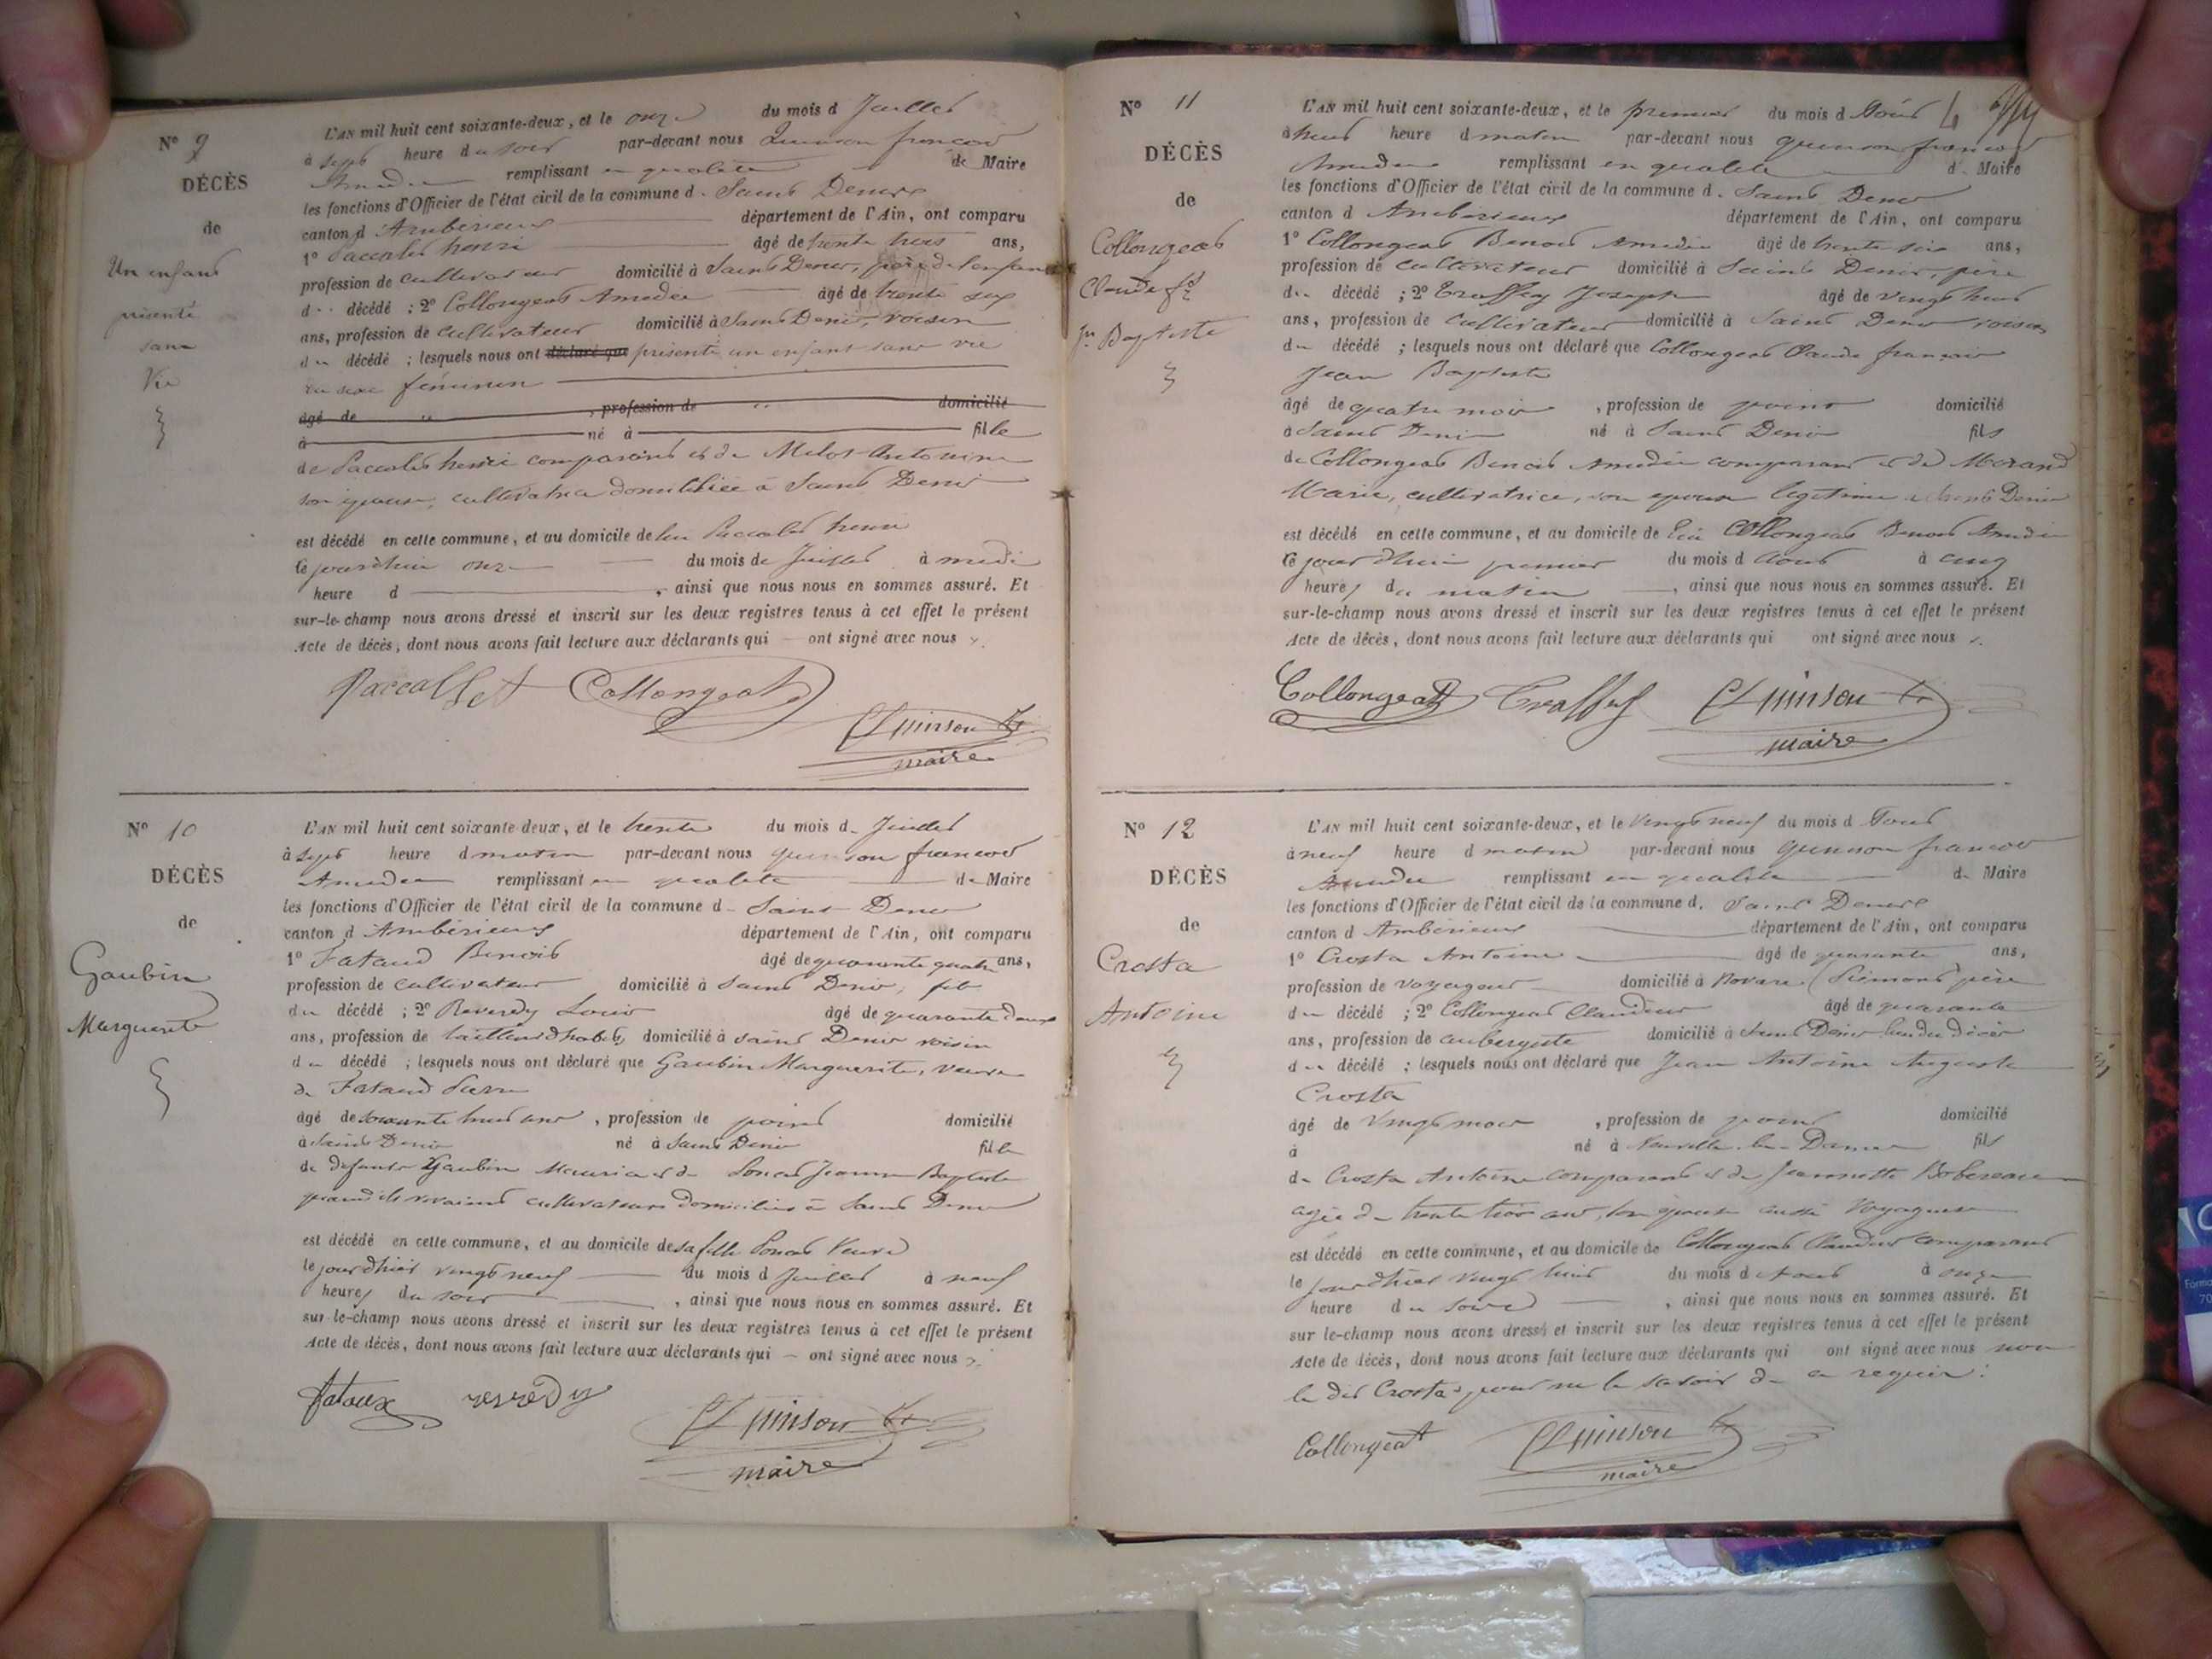 N° 9
DÉCÈS
de
Un enfant
présenté
sans
Vie
L'AN mil huit cent soixante-deux, et le onze du mois d Juillet
à sept heure du soir par-devant nous Quinson françois
Amédée remplissant en qualité de Maire
les fonctions d'Officier de l'état civil de la commune d. Saint Denis
canton d Ambérieux département de l'Ain, ont comparu
1° Paccolet henri âgé de trente trois ans,
profession de cultivateur domicilié à Saint Denis, père de l'enfant
d décédé ; 2° Collongeat Amédée âgé de trente six
ans, profession de cultivateur domicilié à Saint Denis, voisin
du décédé ; lesquels nous ont déclaré que présenté un enfant sans vie
du sexe féminin
âgé de , profession de domicilié
à né à fille
de Paccolet henri comparant et de Milot Antoinine
son épouse, cultivatrice domiciliée à Saint Denis
est décédé en cette commune, et au domicile de lui Paccolet henri
le jourdhui onze du mois de Juillet à midi
heure d , ainsi que nous nous en sommes assuré. Et
sur-le-champ nous avons dressé et inscrit sur les deux registres tenus à cet effet le présent
Acte de décès, dont nous avons fait lecture aux déclarants qui ont signé avec nous
Paccollet Collongeat
Quinson
maire
N° 10
DÉCÈS
de
Gaubin
Marguerite
L'AN mil huit cent soixante-deux, et le trente du mois d. Juillet
à sept heure d matin par-devant nous quinson françois
Amédée remplissant en qualité de Maire
les fonctions d'Officier de l'état civil de la commune d. Saint Denis
canton d Ambérieux département de l'Ain, ont comparu
1° Fataud Benoit âgé de quarante quatre ans,
profession de cultivateur domicilié à Saint Denis, fils
du décédé ; 2° Reverdy Louis âgé de quarante deux
ans, profession de tailleur d'habits, domicilié à saint Denis voisin
du décédé ; lesquels nous ont déclaré que Gaubin Marguerite, veuve
de Fataud Pierre
âgé de soixante huit ans , profession de point domicilié
à Saint Denis né à Saint Denis fille
de défunts Gaubin Mauria et de Jeanne Baptiste
quand ils vivaient cultivateurs domiciliés à Saint Denis
est décédé en cette commune, et au domicile de sa fille Veuve
le jourdhier vingt neuf du mois d Juillet à neuf
heures du soir , ainsi que nous nous en sommes assuré. Et
sur-le-champ nous avons dressé et inscrit sur les deux registres tenus à cet effet le présent
Acte de décès, dont nous avons fait lecture aux déclarants qui ont signé avec nous
fataux revredy
Quinson
maire
N° 11
DÉCÈS
de
Collongeat
Claude fs
Jn Baptiste
L'AN mil huit cent soixante-deux, et le premier du mois d Août
à huit heure d matin par-devant nous quinson françois
Amédée remplissant en qualité d. Maire
les fonctions d'Officier de l'état civil de la commune d. Saint Denis
canton d Ambérieux département de l'Ain, ont comparu
1° Collongeat Benoit Amédée âgé de trente six ans,
profession de cultivateur domicilié à Saint Denis, père
du décédé ; 2° Traffey Joseph âgé de vingt huit
ans, profession de cultivateur domicilié à Saint Denis voisin
du décédé ; lesquels nous ont déclaré que Collongeat Claude françois
Jean Baptiste
âgé de quatre mois , profession de point domicilié
à Saint Denis né à Saint Denis fils
de Collongeat Benoit Amédée comparant et de Morand
Marie, cultivatrice, son épouse légitime Denis
est décédé en cette commune, et au domicile de lui Collongeat Benoit Amédée
le jour dhui premier du mois d Aout à cinq
heures du matin , ainsi que nous nous en sommes assuré. Et
sur-le-champ nous avons dressé et inscrit sur les deux registres tenus à cet effet le présent
Acte de décès, dont nous avons fait lecture aux déclarants qui ont signé avec nous
Collongeat Traffey Quinson
maire
N° 12
DÉCÈS
de
Crosta
Antoine
L'AN mil huit cent soixante-deux, et le vingt neuf du mois d Aout
à neuf heure d matin par-devant nous quinson françois
Amédée remplissant en qualité d. Maire
les fonctions d'Officier de l'état civil de la commune d. Saint Denis
canton d Ambérieux département de l'Ain, ont comparu
1° Crosta Antoine âgé de quarante ans,
profession de voyageur domicilié à Novare (Piémont) père
du décédé ; 2° Collongeat Claudius âgé de quarante
ans, profession de aubergiste domicilié à Saint Denis lieu du décès
du décédé ; lesquels nous ont déclaré que Jean Antoine Auguste
Crosta
âgé de vingt mois , profession de point domicilié
à né à Neuville les Dames fils
de Crosta Antoine comparant et de Jeannette
agée de trente trois ans, son épouse aussi Voyageuse
est décédé en cette commune, et au domicile de Collongeat Claudius comparant
le jourdhier vingt huit du mois d Aout à onze
heure du soir , ainsi que nous nous en sommes assuré. Et
sur le-champ nous avons dressé et inscrit sur les deux registres tenus à cet effet le présent
Acte de décès, dont nous avons fait lecture aux déclarants qui ont signé avec nous non
le dit Crosta pour ne le savoir de ce requis.
Collongeat Quinson
maire